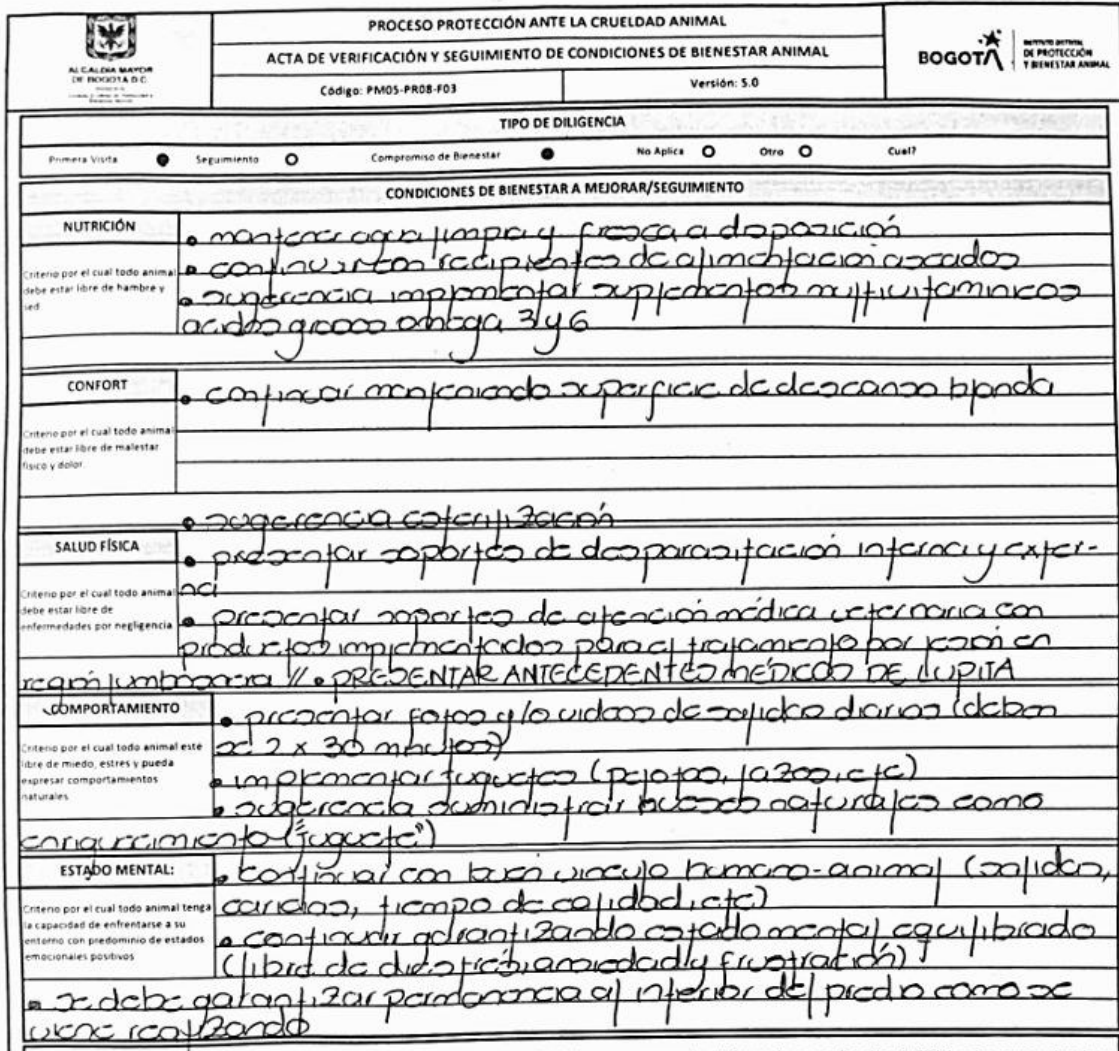 ALCALDIA MAYOR
DE BOGOTÁ D.C.
PROCESO PROTECCIÓN ANTE LA CRUELDAD ANIMAL
ACTA DE VERIFICACIÓN Y SEGUIMIENTO DE CONDICIONES DE BIENESTAR ANIMAL
Código: PM05-PR08-F03 Versión: 5.0
BOGOTÁ
INSTITUTO DISTRITAL
DE PROTECCIÓN
Y BIENESTAR ANIMAL
TIPO DE DILIGENCIA
Primera Visita Seguimiento Compromiso de Bienestar No Aplica Otro Cual?
CONDICIONES DE BIENESTAR A MEJORAR/SEGUIMIENTO
NUTRICIÓN
Criterio por el cual todo animal
debe estar libre de hambre y
sed
• mantener agua limpia y fresca a disposición
• continuar con recipientes de alimentación aseados
• sugerencia implementar suplementos multivitaminicos
acidos grasos omega 3 y 6
CONFORT
Criterio por el cual todo animal
debe estar libre de malestar
físico y dolor.
• continuar manteniendo superficie de descanso blanda
SALUD FÍSICA
Criterio por el cual todo animal
debe estar libre de
enfermedades por negligencia
• sugerencia esterilización
• presentar soportes de desparasitación interna y exter-
na
• presentar soportes de atención médica veternaria con
productos implementados para el tratamiento por lesión en
región lumbosacra // • PRESENTAR ANTECEDENTES MÉDICOS DE LUPITA
COMPORTAMIENTO
Criterio por el cual todo animal esté
libre de miedo, estres y pueda
expresar comportamientos
naturales
• presentar fotos y/o videos de salidas diarias (deben
ser 2 x 30 minutos)
• implementar juguetes (pelotas, lazos, etc)
• sugerencia suministrar huesos naturales como
enriquecimiento ("juguete")
ESTADO MENTAL:
Criterio por el cual todo animal tenga
la capacidad de enfrentarse a su
entorno con predominio de estados
emocionales positivos
• continuar con buen vinculo humano-animal (salidas,
caricias, tiempo de calidad, etc)
• continuar garantizando estado mental equilibrado
(libre de distrés, ansiedad y frustración)
• se debe garantizar permanencia al interior del predio como se
viene realizando